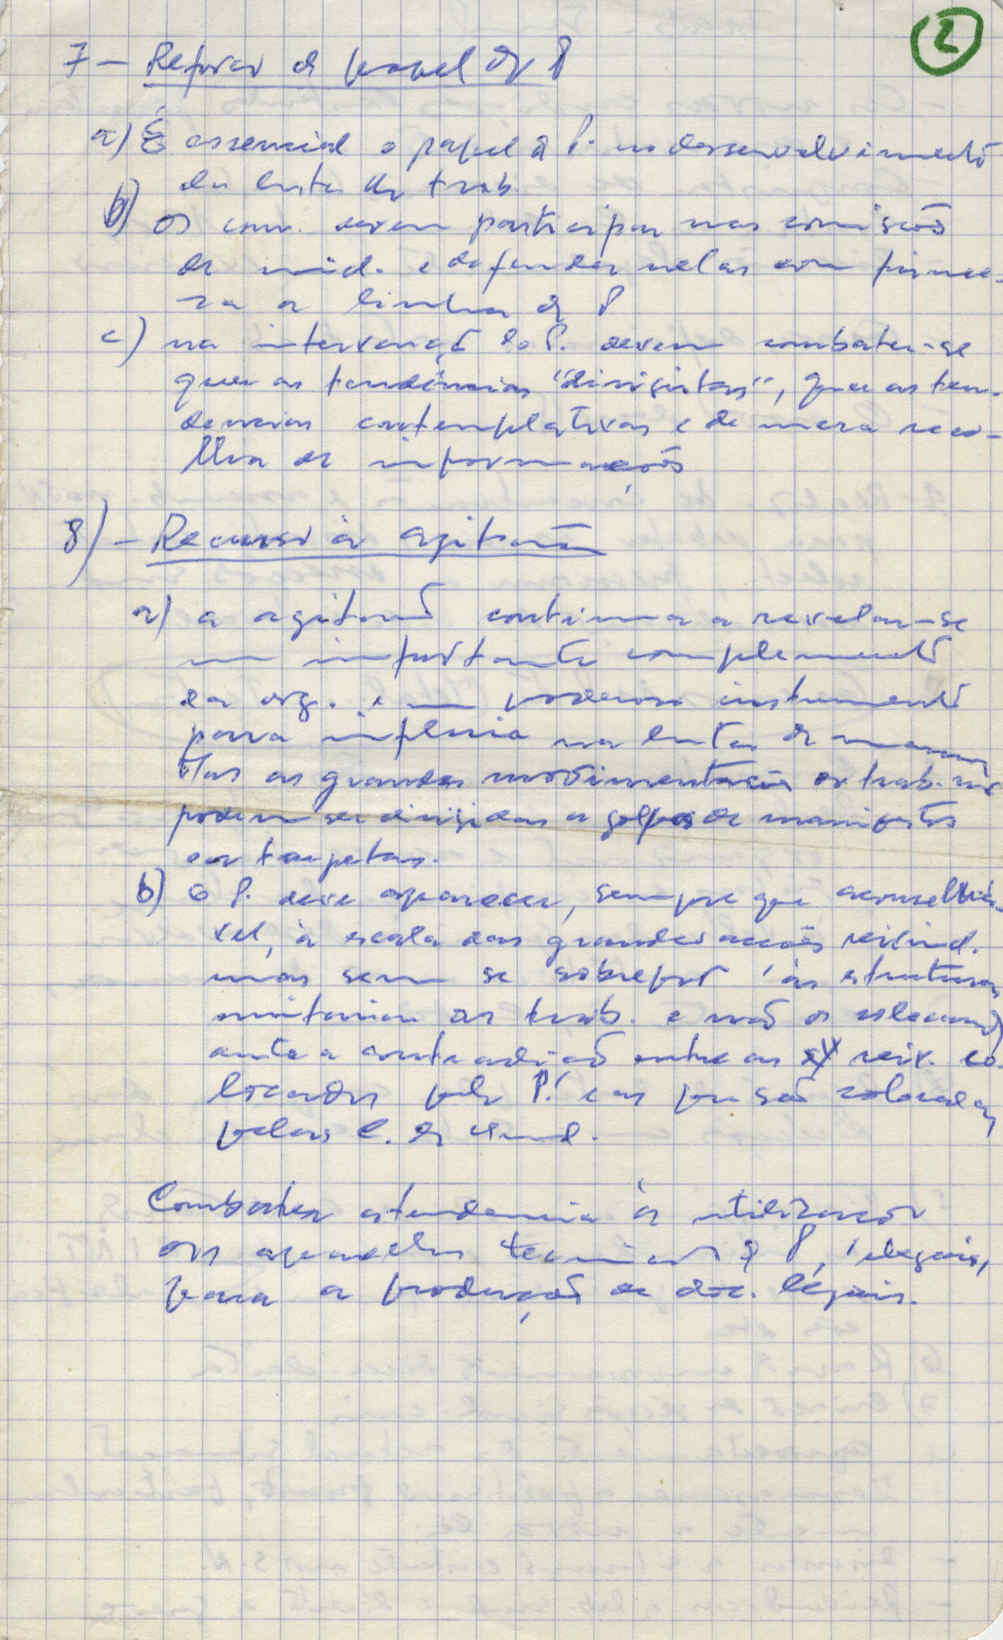 2
7 – Reforço do papel do P
a) É essencial o papel do P. no desenvolvimento
da luta dos trab.
b) os cam. devem participar nas comissões
de unid. e defender nelas com firme-
za a linha do P
c) na intervenção do P. devem combater-se
quer as tendências "divisistas", quer as ten-
dencias contemplativas e de mera reco-
lha de informações
8) – Recurso à agitação
a) a agitação continua a revelar-se
um importante complemento
da org. e um poderoso instrumento
para influir na luta de massas
Mas as grandes movimentações dos trab. não
podem ser dirigidas a golpes de manifestos
ou tarjetas.
b) O P. deve aparecer, sempre que aconselhá-
vel, à escala das grandes acções reivind.
mas sem se sobrepor às estruturas
unitárias dos trab. e não os colocando
ante a contradição entre as reiv. co-
locadas pelo P. e as que são colocadas
pelas C. de Unid.
Combater a tendencia à utilização
dos aparelhos tecnicos do P, ilegais,
para a produção de doc. legais.